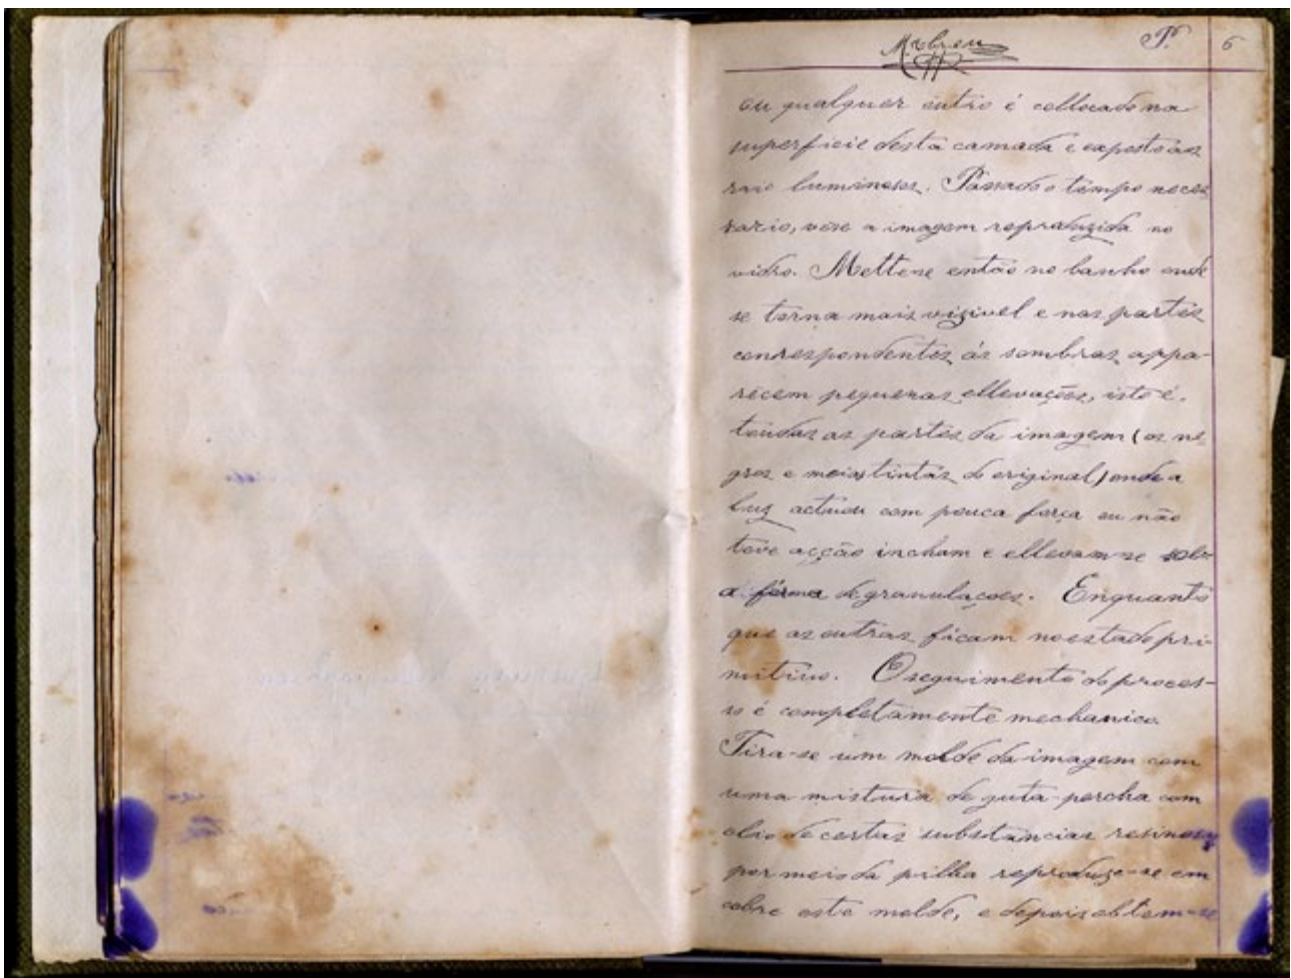 MAbreu
P. 6
ou qualquer outro é collocado na
superficie desta camada e exposto aos
raio luminosos. Passado o tempo neces
sario, vê-se a imagem reproduzida no
vidro. Mette-se então no banho onde
se torna mais vizivel e nas partes
correspondentes ás sombras appa-
recem pequenas ellevações, isto é,
toudas as partes da imagem (os ne-
gros e meias tintas do original) onde a
luz actuou com pouca força ou não
teve acção incham e ellevam-se sob
a fórma de granulações. Enquanto
que as outras ficam no estado pri-
mitivo. O seguimento do proces-
so é completamente mechanico.
Tira-se um molde da imagem com
uma mistura de guta-percha com
olio de certas substancias resinosas
por meio da pilha reproduze-se em
cobre este molde, e depois obtem-se